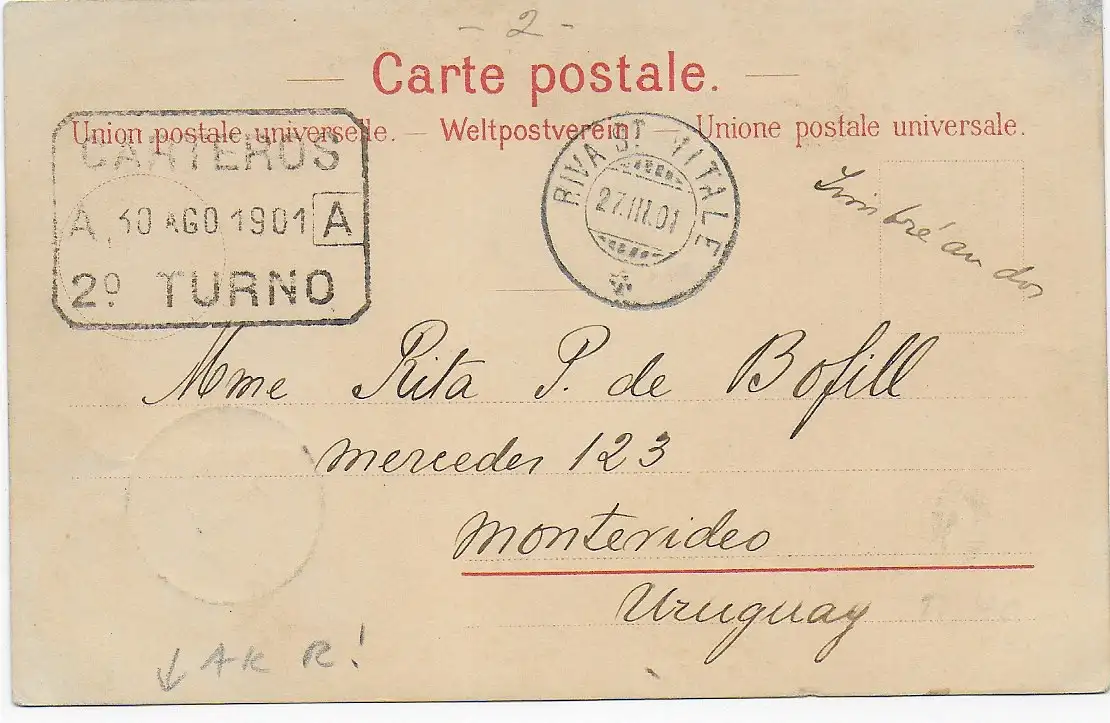 - 2 -
Carte postale.
Union postale universelle. — Weltpostverein — Unione postale universale.
CARTEROS
A 30 AGO 1901 A
2º TURNO
RIVA ST VITALE
27.III.01
Timbré au dos
Mme Rita P. de Bofill
Mercedes 123
Montevideo
Uruguay
↓ AK R!